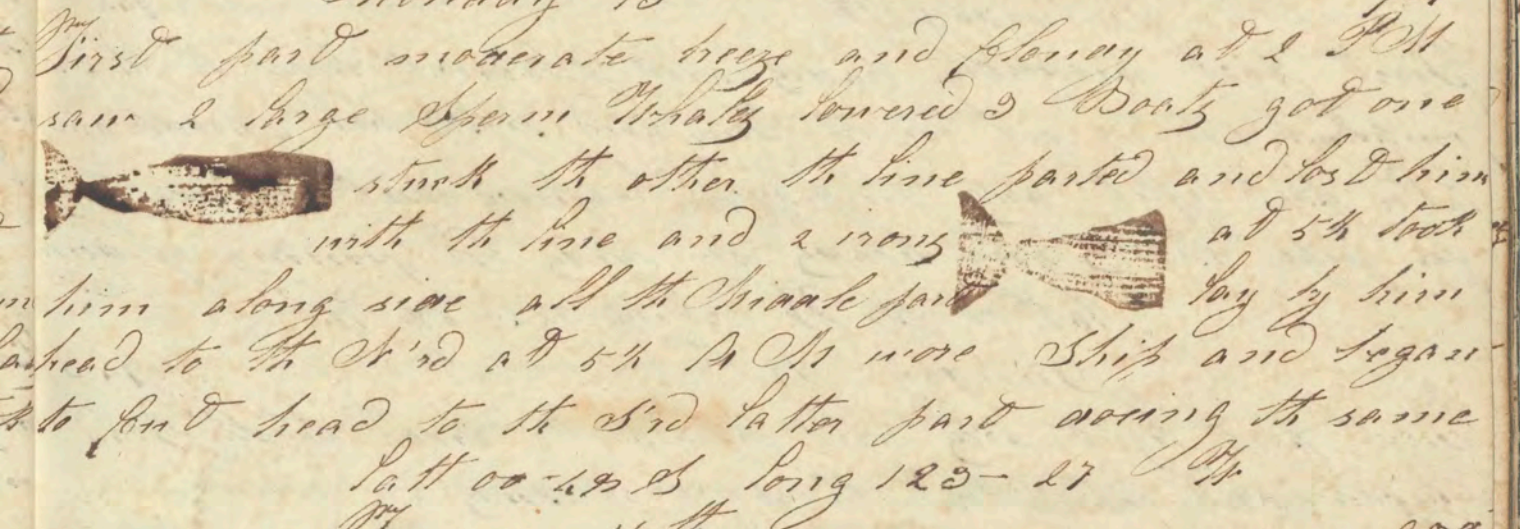 First part moderate breeze and Clouday at 2 PM
saw 2 large Sperm Whales lowered 3 Boats got one
struk th other th line parted and lost him
with th line and 2 irons at 5h took
him along side all th Middle part lay by him
head to th N'rd at 5h A M wore Ship and began
to Cut head to th S'rd latter part doeing th same
latt 00-48 S long 123-27 W